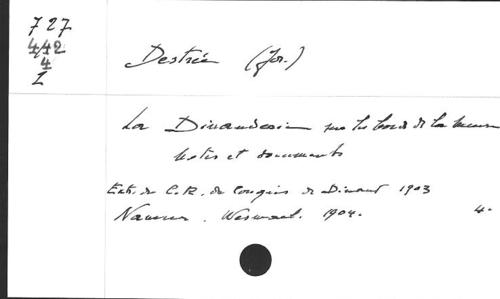 727
442
4
1
Destrée (Jos.)
La Dinanderie sur les bords de la Meuse
Notes et documents
Extr. du C.R. du Congrès de Dinant 1903
Namur. Wesmael. 1904. 4.